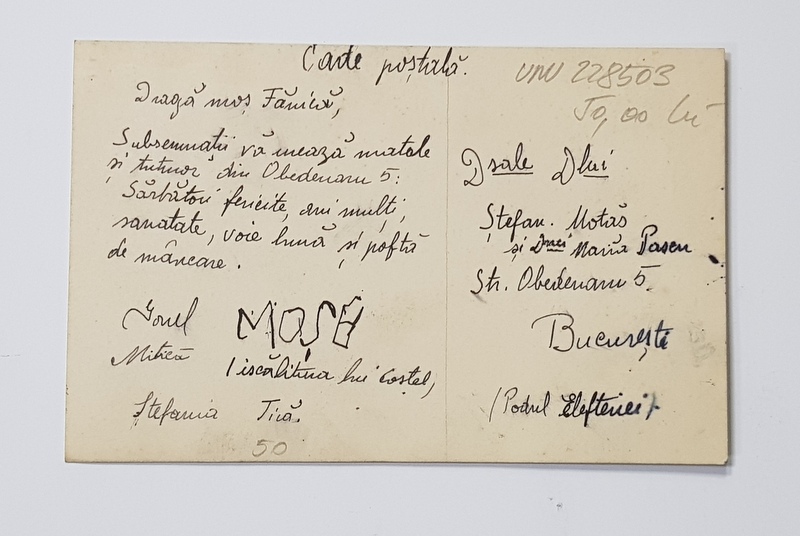 Carte poștală.
Dragă moș Fănică,
Subsemnații vă urează matale
și tutulor din Obedenaru 5:
Sărbători fericite, ani mulți,
sanatate, voie bună și poftă
de mâncare.
Ionel
MOȘĂ
Mitică
(iscălitura lui Coștel)
Ștefania Tică.
50
228503
50,00 lei
Dsale Dlui
Ștefan. Motăș
și Dnei Maria Pascu
Str. Obedenaru 5.
București
(Podul Elefteriei)